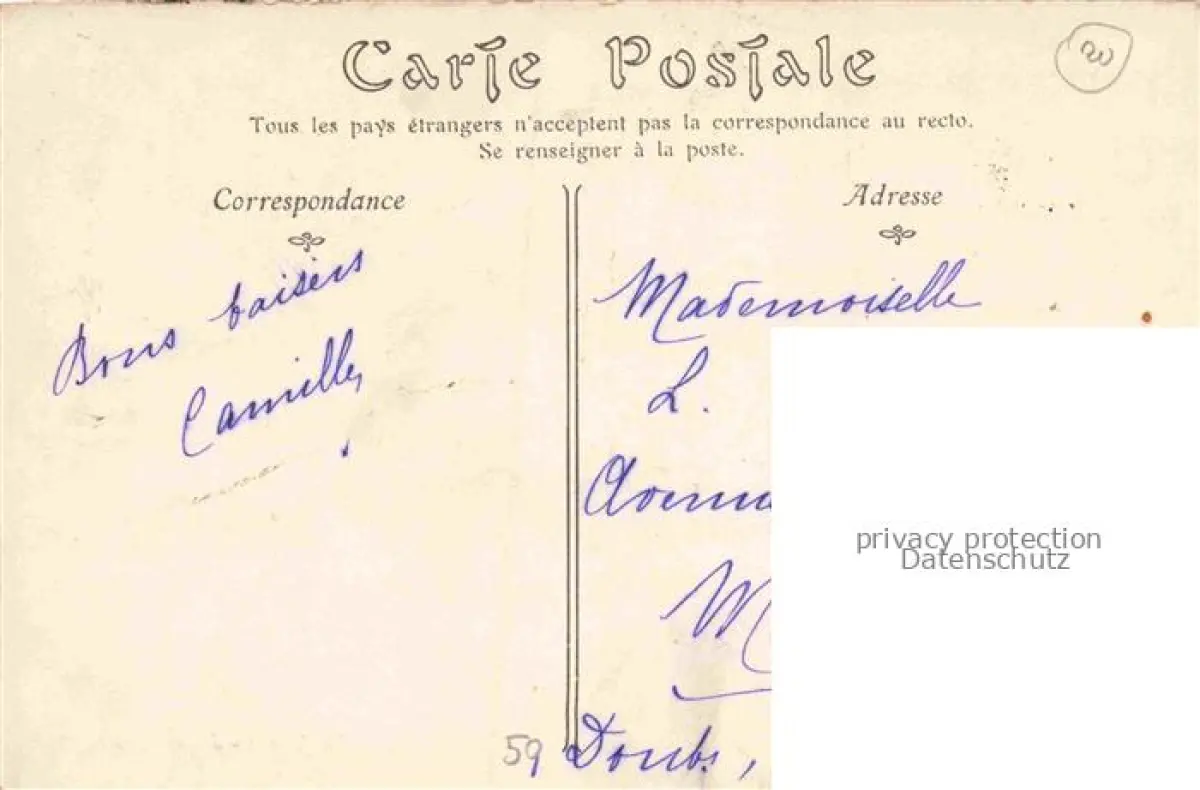 Carte Postale
Tous les pays étrangers n'acceptent pas la correspondance au recto.
Se renseigner à la poste.
Correspondance
Bons baisers
Camille
Adresse
Mademoiselle
L.
Avenu
M
Doubs,
59
20
privacy protection
Datenschutz